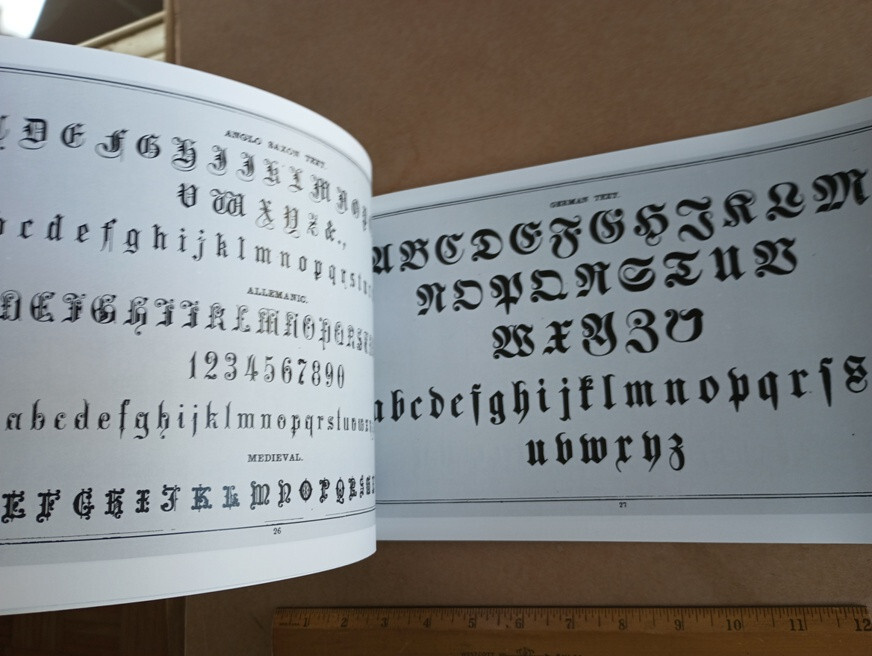 ANGLO SAXON TEXT.
D E F G H I J K L M N O P
V W X Y Z &.,
c d e f g h i j k l m n o p q r s t u
ALLEMANIC.
D E F G H I J K L M N O P Q R S T
1 2 3 4 5 6 7 8 9 0
a b c d e f g h i j k l m n o p q r s t u v w x
MEDIEVAL.
E F G H I J K L M N O P Q R S
26
GERMAN TEXT.
A B C D E F G H I K L M
N O P Q R S T U V
W X Y Z
a b c d e f g h i j k l m n o p q r ſ s
u v w x y z
27
1 2 3 4 5 6 7 8 9 10 11 12